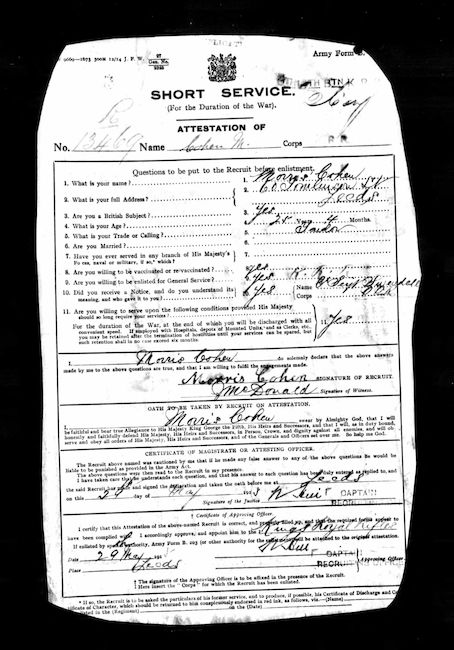 9069—1673 300M 12/14 J. P.
Army Form
SHORT SERVICE.
(For the Duration of the War.)
ATTESTATION OF
No. 13469 Name Cohen M. Corps
Questions to be put to the Recruit before enlistment.
1. What is your name? 1. Morris Cohen
2. What is your full Address? 2. 60 Tomlinson
Leeds
3. Are you a British Subject? 3. Yes
4. What is your Age? 4. 25 Years 4 Months.
5. What is your Trade or Calling? 5. Tailor
6. Are you Married?
7. Have you ever served in any branch of His Majesty's
Forces, naval or military, if so, which?
8. Are you willing to be vaccinated or re-vaccinated? 8. yes
9. Are you willing to be enlisted for General Service? 9. yes
10. Did you receive a Notice, and do you understand its
meaning, and who gave it to you? 10. yes Name
Corps
11. Are you willing to serve upon the following conditions provided His Majesty
should so long require your services?
For the duration of the War, at the end of which you will be discharged with all
convenient speed. If employed with Hospitals, depots of Mounted Units, and as Clerks, etc.,
you may be retained after the termination of hostilities until your services can be spared, but
such retention shall in no case exceed six months
Yes
I, Morris Cohen do solemnly declare that the above answers
made by me to the above questions are true, and that I am willing to fulfil the engagements made.
Morris Cohen SIGNATURE OF RECRUIT.
McDonald Signature of Witness.
OATH TO BE TAKEN BY RECRUIT ON ATTESTATION.
I, Morris Cohen swear by Almighty God, that I will
be faithful and bear true Allegiance to His Majesty King George the Fifth, His Heirs and Successors, and that I will, as in duty bound,
honestly and faithfully defend His Majesty, His Heirs and Successors, in Person, Crown, and dignity against all enemies, and will
serve and obey all orders of His Majesty, His Heirs and Successors, and of the Generals and Officers set over me. So help me God.
CERTIFICATE OF MAGISTRATE OR ATTESTING OFFICER.
The Recruit above named was cautioned by me that if he made any false answer to any of the above questions he would be
liable to be punished as provided in the Army Act.
The above questions were then read to the Recruit in my presence.
I have taken care that he understands each question, and that his answer to each question has been duly entered as replied to, and
the said Recruit has made and signed the declaration and taken the oath before me at Leeds
on this day of May
Signature of the Justice CAPTAIN
RECRUITING
† Certificate of Approving Officer.
I certify that this Attestation of the above-named Recruit is correct, and properly filled up, and that the required forms appear to
have been complied with. I accordingly approve, and appoint him to the Kings Royal Rifles
If enlisted by special authority, Army Form B. 203 (or other authority for the enlistment) will be attached to the original attestation.
Date 29 May CAPTAIN Approving Officer
Place Leeds RECRUITING
† The signature of the Approving Officer is to be affixed in the presence of the Recruit.
‡ Here insert the "Corps" for which the Recruit has been enlisted.
* If so, the Recruit is to be asked the particulars of his former service, and to produce, if possible, his Certificate of Discharge and
Certificate of Character, which should be returned to him conspicuously endorsed in red ink, as follows, viz.
on the (Date)